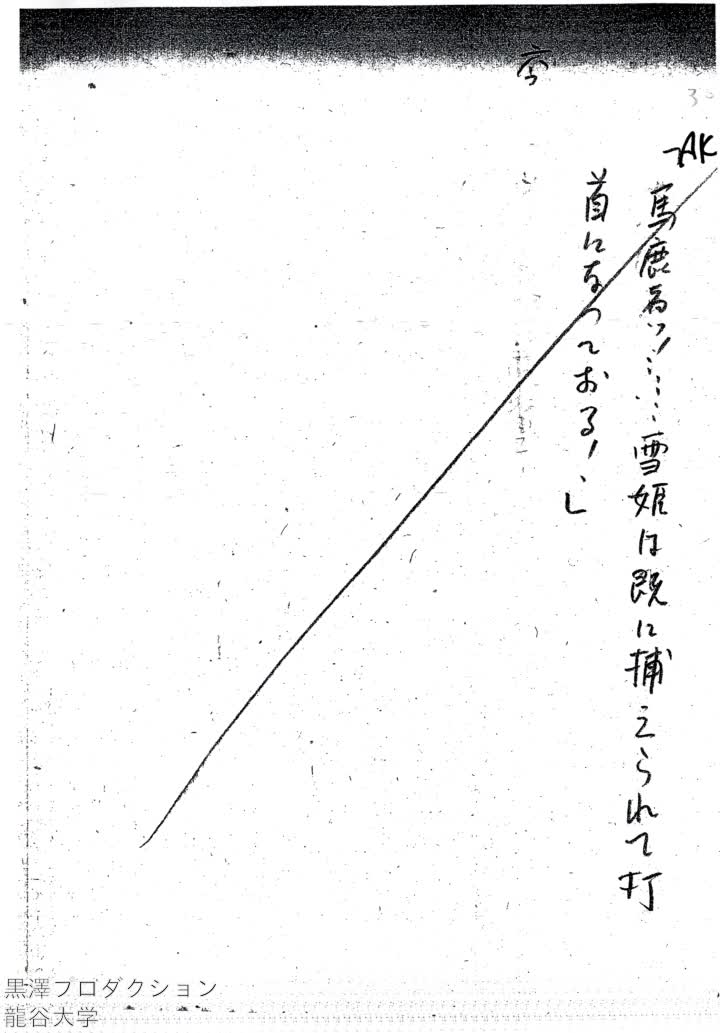 30
AK
「馬鹿者ッ!……雪姫は既に捕えられて打
首になっておる!」
黒澤プロダクション
龍谷大学